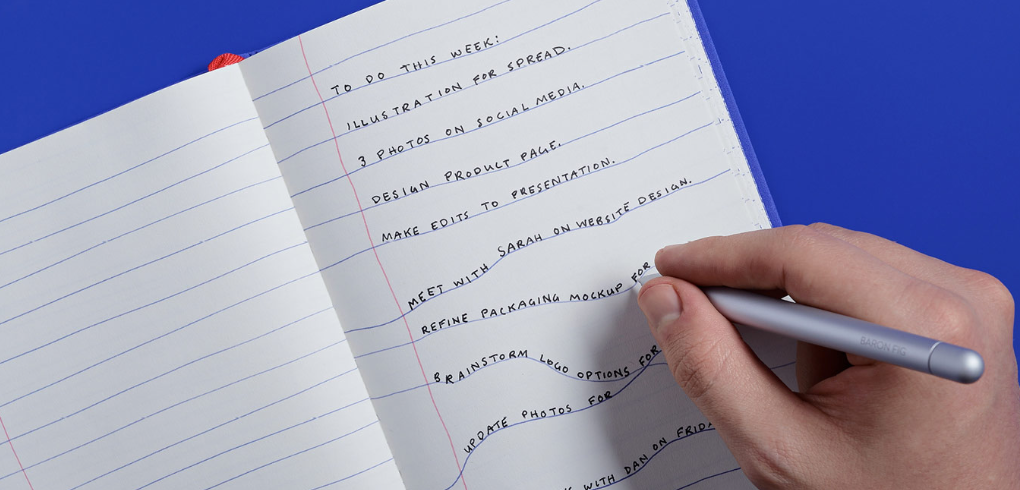 TO DO THIS WEEK:
ILLUSTRATION FOR SPREAD.
3 PHOTOS ON SOCIAL MEDIA.
DESIGN PRODUCT PAGE.
MAKE EDITS TO PRESENTATION.
MEET WITH SARAH ON WEBSITE DESIGN.
REFINE PACKAGING MOCKUP FOR
BRAINSTORM LOGO OPTIONS FOR
UPDATE PHOTOS FOR
WITH DAN ON
BARON FIG